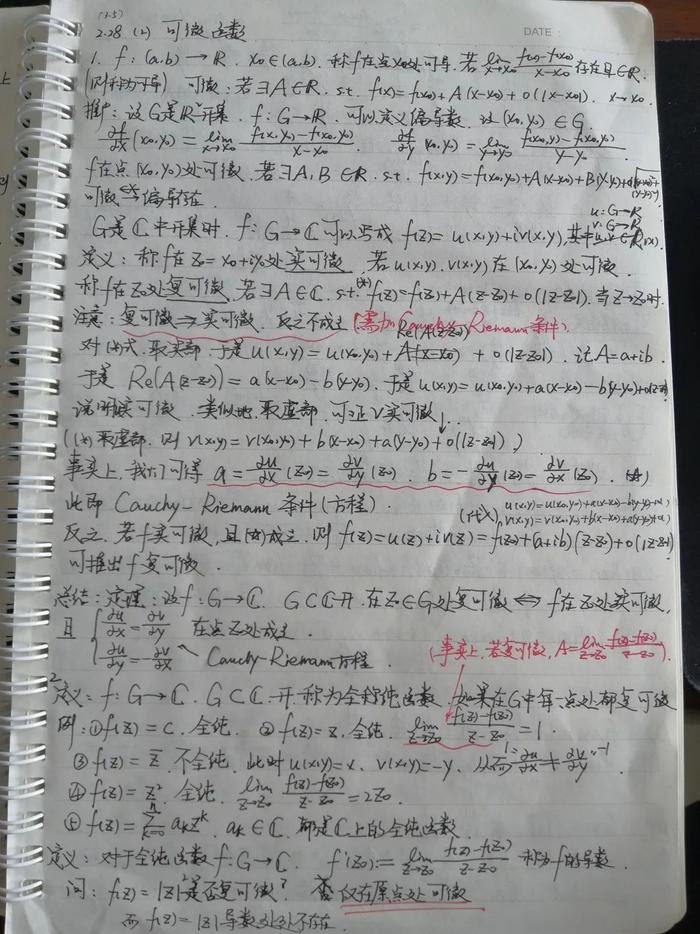 (P.5)
2.28 (2) 可微函数
DATE:
1. f: (a,b) → R. x₀∈(a,b). 称f在点x₀处可导, 若 lim_{x→x₀} (f(x)-f(x₀))/(x-x₀) 存在且∈R.
(则称为可导) 可微: 若∃A∈R. s.t. f(x)=f(x₀)+A(x-x₀)+o(|x-x₀|). x→x₀.
推广: 设G是R²开集. f: G→R. 可以定义偏导数. 设(x₀,y₀)∈G
∂f/∂x (x₀,y₀) = lim_{x→x₀} (f(x,y₀)-f(x₀,y₀))/(x-x₀). ∂f/∂y (x₀,y₀) = lim_{y→y₀} (f(x₀,y)-f(x₀,y₀))/(y-y₀).
f在点(x₀,y₀)处可微. 若∃A,B∈R. s.t. f(x,y)=f(x₀,y₀)+A(x-x₀)+B(y-y₀)+o(√((x-x₀)²+(y-y₀)²))
可微 ⇒ 偏导存在.
u: G→R
v: G→R
G是C中开集时. f: G→C可以写成 f(z)=u(x,y)+iv(x,y), 其中u,v∈R
定义: 称f在z₀=x₀+iy₀处实可微. 若u(x,y), v(x,y)在(x₀,y₀)处可微.
称f在z₀处复可微. 若∃A∈C. s.t. (*) f(z)=f(z₀)+A(z-z₀)+o(|z-z₀|). 当z→z₀时.
注意: 复可微⇒实可微. 反之不成立 (需加Cauchy-Riemann条件).
Re(A(z-z₀))
对(*)式. 取实部. 于是 u(x,y)=u(x₀,y₀)+A(x-x₀)+o(|z-z₀|). 记A=a+ib.
于是 Re(A(z-z₀))=a(x-x₀)-b(y-y₀). 于是 u(x,y)=u(x₀,y₀)+a(x-x₀)-b(y-y₀)+o(|z-z₀|)
说明u实可微. 类似地. 取虚部. 可证v实可微.
((*)取虚部. 则 v(x,y)=v(x₀,y₀)+b(x-x₀)+a(y-y₀)+o(|z-z₀|).)
事实上, 我们可得 a=∂u/∂x(z₀)=∂v/∂y(z₀). b=-∂u/∂y(z₀)=∂v/∂x(z₀). (☆)
此即 Cauchy-Riemann 条件(方程).
(代入) u(x,y)=u(x₀,y₀)+a(x-x₀)-b(y-y₀)+o( )
v(x,y)=v(x₀,y₀)+b(x-x₀)+a(y-y₀)+o( )
反之. 若f实可微, 且(☆)成立. 则 f(z)=u(z)+iv(z)=f(z₀)+(a+ib)(z-z₀)+o(|z-z₀|)
可推出f复可微.
总结: 定理: 设f: G→C. G⊂C开. 在z₀∈G处复可微 ⇔ f在z₀处实可微.
且 { ∂u/∂x=∂v/∂y 在点z₀处成立.
∂u/∂y=-∂v/∂x Cauchy-Riemann方程.
(事实上, 若复可微, A=lim_{z→z₀} (f(z)-f(z₀))/(z-z₀)).
2 定义: f: G→C. G⊂C. 开. 称为全纯函数. 如果在G中每一点处都复可微
例: ① f(z)=c. 全纯. ② f(z)=z. 全纯. lim_{z→z₀} (f(z)-f(z₀))/(z-z₀)=1.
③ f(z)=z̄. 不全纯. 此时u(x,y)=x. v(x,y)=-y. 从而 1=∂u/∂x≠∂v/∂y=-1
④ f(z)=z². 全纯. lim_{z→z₀} (f(z)-f(z₀))/(z-z₀)=2z₀.
⑤ f(z)=∑_{k=0}^{n} a_k z^k. a_k∈C. 都是C上的全纯函数.
定义: 对于全纯函数f: G→C. f'(z₀):=lim_{z→z₀} (f(z)-f(z₀))/(z-z₀) 称为f的导数.
问: f(z)=|z|²是否复可微? 否 仅在原点处可微
而 f(z)=|z| 导数处处不存在.